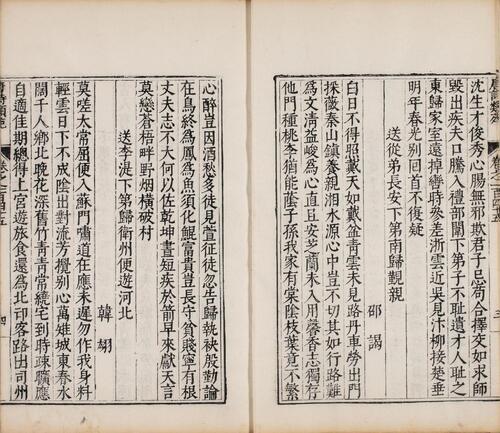 沈生才俊秀心腸無邪欺君子忌苟合擇交如求師
毀出疾夫口騰入禮部闈下第子不恥遺才人恥之
東歸家室遠掉轡時參差浙雲近吳見汴柳接楚垂
明年春光别回首不復疑
送從弟長安下第南歸覲親
邵謁
白日不得照戴天如戴盆青雲未見路丹車勞出門
採薇秦山鎮養親湘水源心中豈不切其如行路難
為文清益峻為心直且安芝蘭未入用馨香志獨存
他門種桃李猶能蔭子孫我家有棠陰枝葉竟不繁
心醉豈因酒愁多徒見萱征徒忽告歸執袂殷勤論
在鳥終為鳳為魚須化鯤富貴豈長守貧賤寧有根
丈夫志不大何以佐乾坤晝短疾於箭早來獻天言
莫戀蒼梧畔野烟橫破村
送李湜下第歸衛州便遊河北
韓翃
莫嗟太常屈便入蘇門嘯道在應未遲勿作我身料
輕雲日下不成陰出對流芳攪别心萬雉城東春水
闊千人鄉北晚花深舊竹青青常繞宅到時疎曠應
自適佳期總得上宮遊旅食還為北印客路出司州
唐詩類苑
卷之一百四十五
四
三